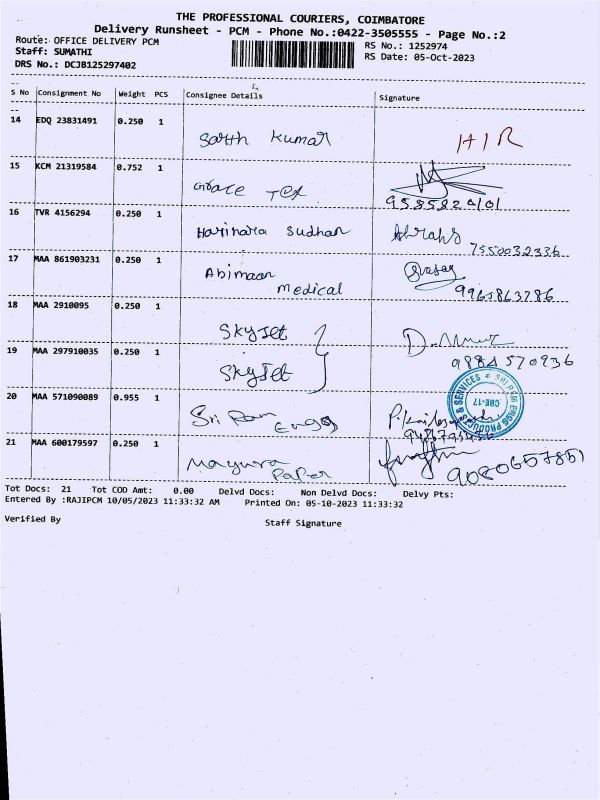 THE PROFESSIONAL COURIERS, COIMBATORE
Delivery Runsheet - PCM - Phone No.:0422-3505555 - Page No.:2
Route: OFFICE DELIVERY PCM
RS No.: 1252974
Staff: SUMATHI
RS Date: 05-Oct-2023
DRS No.: DCJB125297402
S No Consignment No Weight PCS Consignee Details Signature
14 EDQ 23831491 0.250 1
Kumar
15 KCM 21319584 0.752 1
Grace Tex
9585820101
16 TVR 4156294 0.250 1
Harindra Sudhan
7550032336
17 MAA 861903231 0.250 1
Abimaan
medical
18 MAA 2910095 0.250 1
SkyJet
19 MAA 297910035 0.250 1
SkyJet
9884570936
20 MAA 571090089 0.955 1
Sri Ram Enggs
SRI RAM ENGG PRODUCTS & SERVICES
CBE-17
21 MAA 600179597 0.250 1
Mayura
Paper
9080657851
Tot Docs: 21 Tot COD Amt: 0.00 Delvd Docs: Non Delvd Docs: Delvy Pts:
Entered By :RAJIPCM 10/05/2023 11:33:32 AM Printed On: 05-10-2023 11:33:32
Verified By
Staff Signature